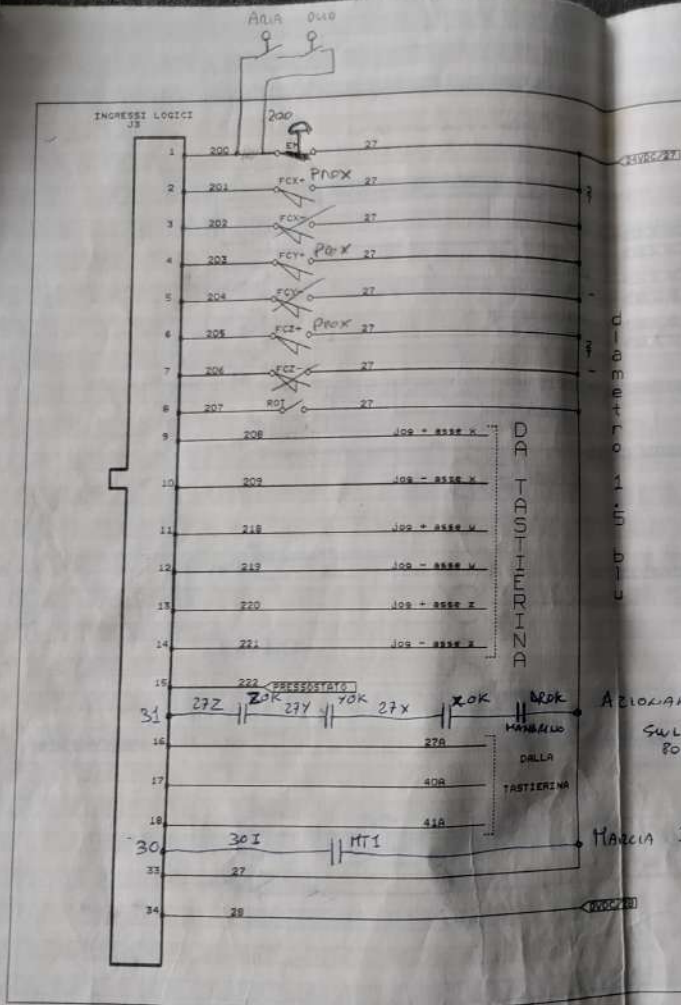 ARIA OLIO
INGRESSI LOGICI
J3
200
1 200 EM 27 24VDC/27
2 201 FCX+ PROX 27
3 202 FCX- 27
4 203 FCY+ PROX 27
5 204 FCY- 27
6 205 FCZ+ PROX 27
7 206 FCZ- 27
8 207 ROT 27
9 208 Jog + asse x
10 209 Jog - asse x
11 218 Jog + asse y
12 219 Jog - asse y
13 220 Jog + asse z
14 221 Jog - asse z
DA TASTIERINA
diametro 1.5 blu
15 222 PRESSOSTATO
31 27Z ZOK 27Y YOK 27X XOK DROK AZIONA
MANDRINO
16 27A
17 40A
18 41A
DALLA
TASTIERINA
30 30I MT1 MARCIA
33 27
34 28 0VDC/28